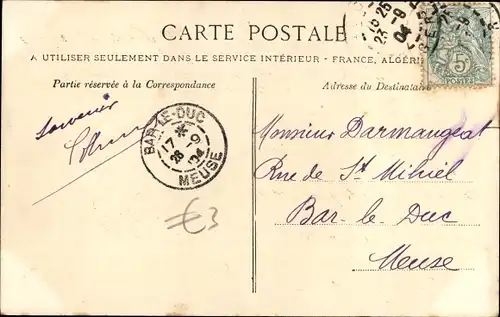 CARTE POSTALE
A UTILISER SEULEMENT DANS LE SERVICE INTÉRIEUR - FRANCE, ALGÉRI
Partie réservée à la Correspondance
Adresse du Destinataire
souvenir
BAR-LE-DUC
17 * 9
28 04
MEUSE
5
POSTES
Monsieur Darmangeat
Rue de St Mihiel
Bar-le-Duc
Meuse
€3